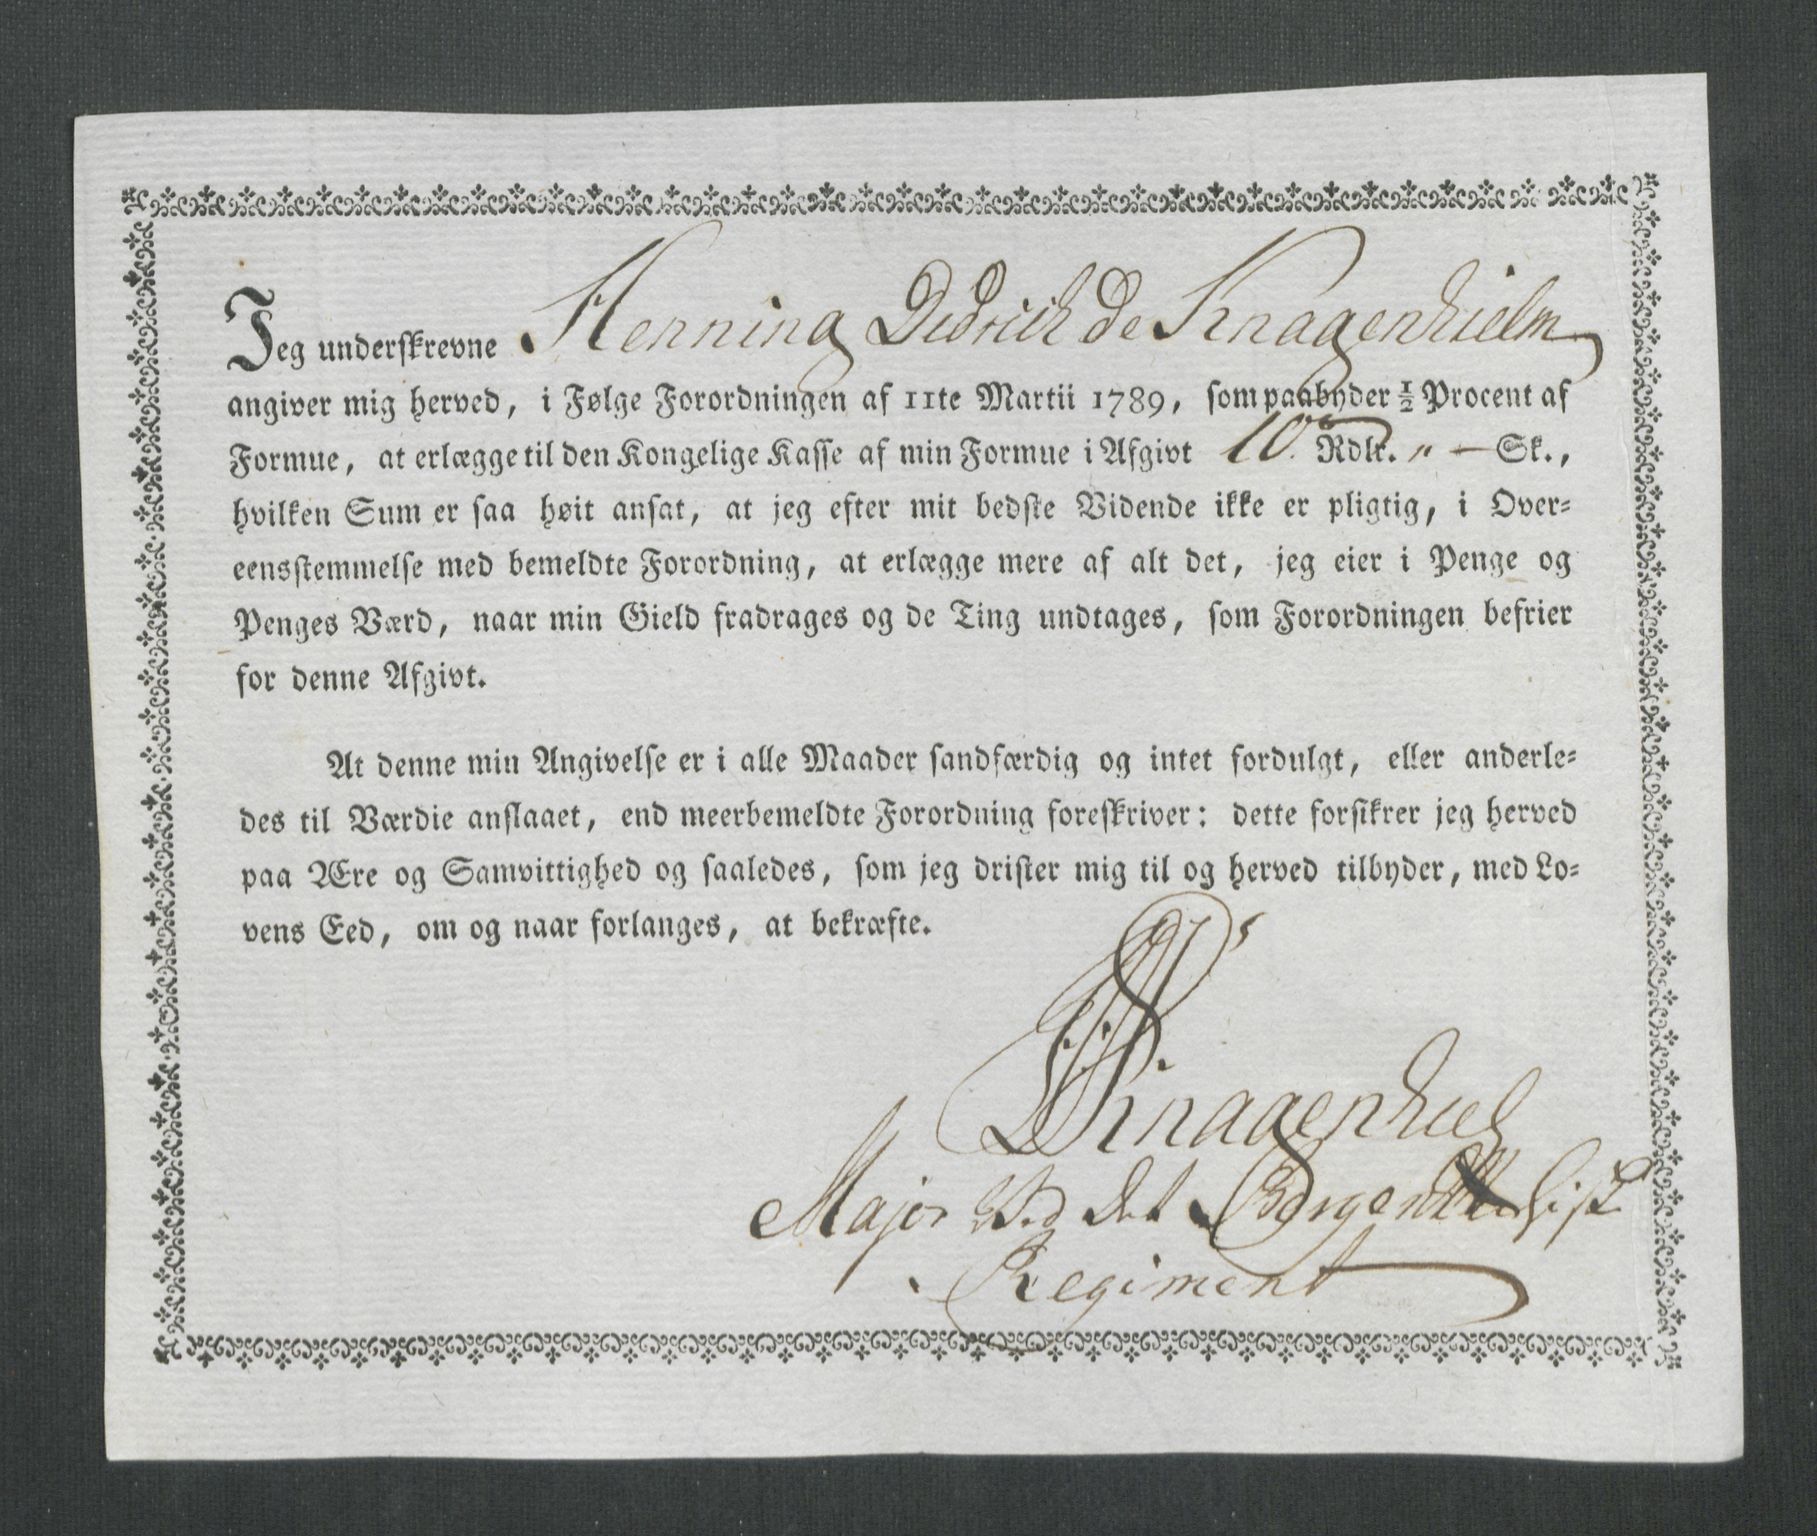 Jeg underskrevne Henning Didrich De Knagenhielm
angiver mig herved, i Følge Forordningen af 11te Martii 1789, som paabyder ½ Procent af
Formue, at erlægge til den Kongelige Kasse af min Formue i Afgivt 10 Rdlr. „ — Sk.,
hvilken Sum er saa høit ansat, at jeg efter mit bedste Vidende ikke er pligtig, i Over-
eensstemmelse med bemeldte Forordning, at erlægge mere af alt det, jeg eier i Penge og
Penges Værd, naar min Gield fradrages og de Ting undtages, som Forordningen befrier
for denne Afgivt.
At denne min Angivelse er i alle Maader sandfærdig og intet fordulgt, eller anderle-
des til Værdie anslaaet, end meerbemeldte Forordning foreskriver: dette forsikrer jeg herved
paa Ære og Samvittighed og saaledes, som jeg drister mig til og herved tilbyder, med Lo-
vens Eed, om og naar forlanges, at bekræfte.
Knagenhiel
Major Ved det
Regiment